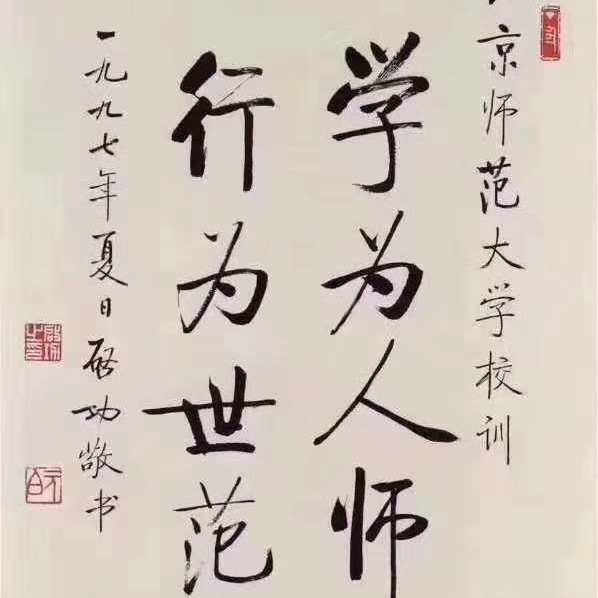 京师范大学校训
学为人师
行为世范
一九九七年夏日启功敬书